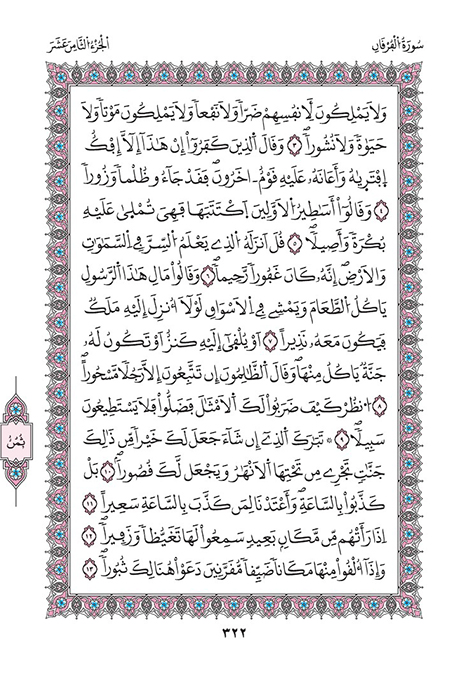 سُورَةُ الْفُرْقَانِ
الْجُزْءُ الثَّامِنَ عَشَرَ
وَلَا يَمْلِكُونَ لِأَنفُسِهِمْ ضَرّاً وَلَا نَفْعاً وَلَا يَمْلِكُونَ مَوْتاً وَلَا
حَيَوٰةً وَلَا نُشُوراً ٣ وَقَالَ اَ۬لذِينَ كَفَرُوٓاْ إِنْ هَٰذَآ إِلَّآ إِفْكٌ
اِ۪فْتَر۪يٰهُ وَأَعَانَهُۥ عَلَيْهِ قَوْمٌ ـاخَرُونَۖ فَقَدْ جَآءُو ظُلْماً وَزُوراًۖ
٤ وَقَالُوٓاْ أَسَٰطِيرُ اُ۬لَاوَّلِينَ اَ۪كْتَتَبَهَا فَهِيَ تُمْل۪يٰ عَلَيْهِ
بُكْرَةً وَأَصِيلاًۖ ٥ قُلَ اَنزَلَهُ اُ۬لذِے يَعْلَمُ اُ۬لسِّرَّ فِے اِ۬لسَّمَٰوَٰتِ
وَالَارْضِۖ إِنَّهُۥ كَانَ غَفُوراً رَّحِيماًۖ ٦ وَقَالُواْ مَالِ هَٰذَا اَ۬لرَّسُولِ
يَاكُلُ اُ۬لطَّعَامَ وَيَمْشِے فِے اِ۬لَاسْوَاقِ لَوْلَآ أُنزِلَ إِلَيْهِ مَلَكٌ
فَيَكُونَ مَعَهُۥ نَذِيراً ٧ اَوْ يُلْق۪يٰٓ إِلَيْهِ كَنزٌ اَوْ تَكُونُ لَهُۥ
جَنَّةٌ يَاكُلُ مِنْهَاۖ وَقَالَ اَ۬لظَّٰلِمُونَ إِن تَتَّبِعُونَ إِلَّا رَجُلاً مَّسْحُوراًۖ
٨ اُ۟نظُرْ كَيْفَ ضَرَبُواْ لَكَ اَ۬لَامْثَٰلَ فَضَلُّواْ فَلَا يَسْتَطِيعُونَ
سَبِيلاًۖ ٩ تَبَٰرَكَ اَ۬لذِےٓ إِن شَآءَ جَعَلَ لَكَ خَيْراً مِّن ذَٰلِكَ
جَنَّٰتٍ تَجْرِے مِن تَحْتِهَا اَ۬لَانْهَٰرُ وَيَجْعَل لَّكَ قُصُوراًۖ ١٠ بَلْ
كَذَّبُواْ بِالسَّاعَةِۖ وَأَعْتَدْنَا لِمَن كَذَّبَ بِالسَّاعَةِ سَعِيراً ١١
اِذَا رَأَتْهُم مِّن مَّكَانِۢ بَعِيدٍ سَمِعُواْ لَهَا تَغَيُّظاً وَزَفِيراًۖ ١٢
وَإِذَآ أُلْقُواْ مِنْهَا مَكَاناً ضَيِّقاً مُّقَرَّنِينَ دَعَوْاْ هُنَالِكَ ثُبُوراًۖ ١٣
ثُمُن
٣٢٢